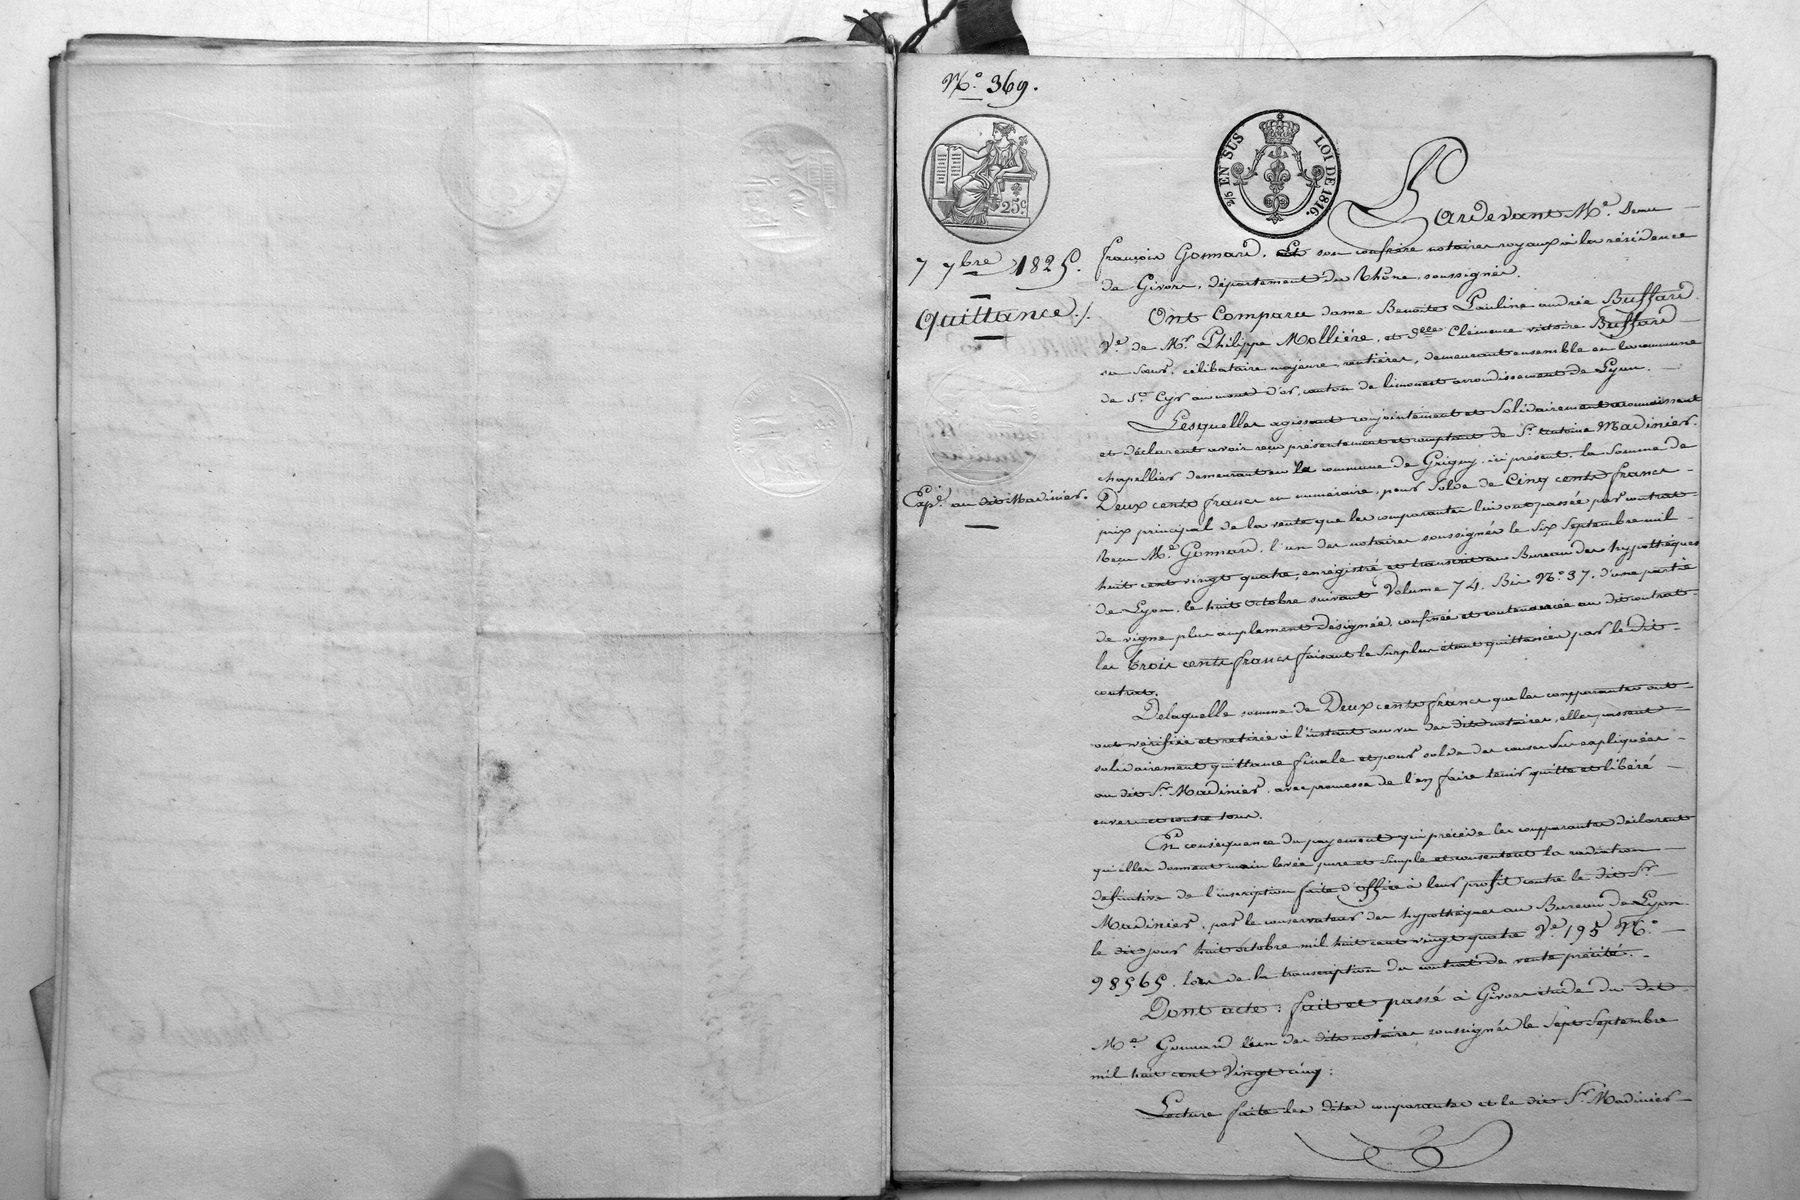 N.° 369.
25.c
2/5 EN SUS LOI DE 1816.
7 7bre 1825.
Quittance ./.
Exp.on au dit Madinier.
Pardevant M.e Denis
françois Gonnard, Et son confrère notaires royaux à la résidence
de Givors, département du Rhône, soussignés.
Ont Comparu dame Benoite Pauline andrée Buffard
V.e de M.r Philippe Mollière, et d.elle Clémence victoire Buffard
sa Sœur, célibataire majeure, rentières, demeurant ensemble en la commune
de S.t Cyr au mont d'or, canton de limonest arrondissement de Lyon.
Lesquelles agissant conjointement et Solidairement reconnaissent
et déclarent avoir reçu présentement et comptant de S.r Antoine Madinier
chapellier demeurant en la commune de Grigny, ici présent, la Somme de
Deux cents francs en numéraire, pour Solde de Cinq cents francs
prix principal de la vente que les comparantes lui ont passée par contrat
Reçu M.e Gonnard, l'un des notaires soussignés le Six Septembre mil
huit cent vingt quatre, enregistré et transcrit au Bureau des hypothèques
de Lyon, le huit octobre suivant Volume 74. Bis N.° 37. d'une partie
de vigne plus amplement désignée, confinée et contenancée au dit contrat
les trois cents francs faisant le Surplus étant quittancés par le dit
contrat.
De laquelle somme de Deux cents francs que les comparantes ont
ont vérifiée et retirée à l'instant au vu des dits notaires, elles passent
solidairement quittance finale et pour solde des causes Sus expliquées
au dit S.r Madinier, avec promesse de l'en faire tenir quitte et libéré
envers et contre tous.
En conséquence du payement qui précède les comparantes déclarent
qu'elles donnent main levée pure et simple et consentent la radiation
définitive de l'inscription faite d'office à leur profit contre le dit S.r
Madinier, par le conservateur des hypothèques au Bureau de Lyon
le dit jour huit octobre mil huit cent vingt quatre V.e 195 N.°
98565. lors de la transcription du contrat de vente précité.
Dont acte: fait et passé à Givors étude du dit
M.e Gonnard l'un des dits notaires soussignés le Sept Septembre
mil huit cent Vingt cinq:
Lecture faite les dites comparantes et le dit S.r Madinier